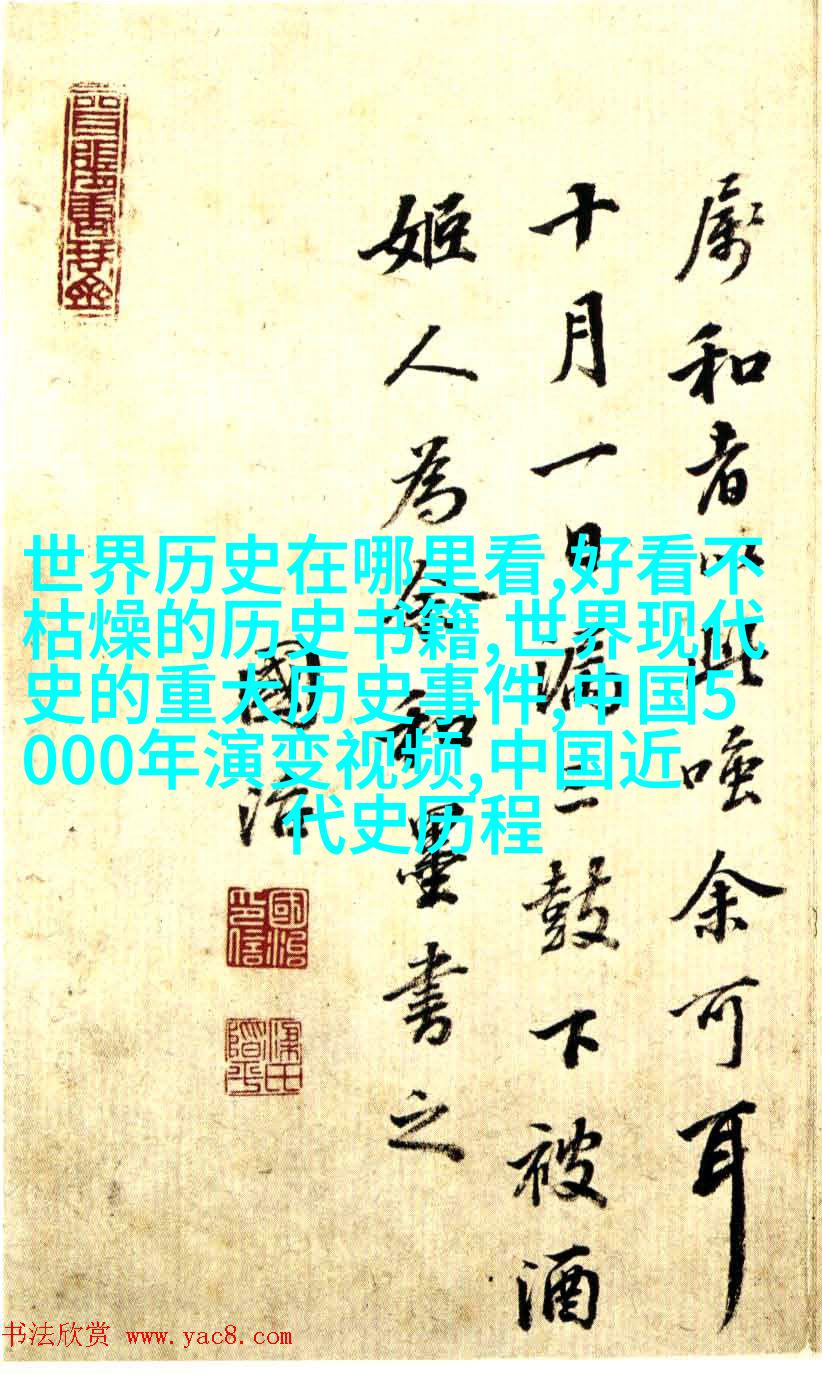 属和者以此嗤余可耳
十月一日漏鼓下被酒
姬人為余和墨書之
國治
國治印信
世界历史在哪里看,好看不
枯燥的历史书籍,世界现代
史的重大历史事件,中国5
000年演变视频,中国近
代史历程
书法欣赏 www.yac8.com